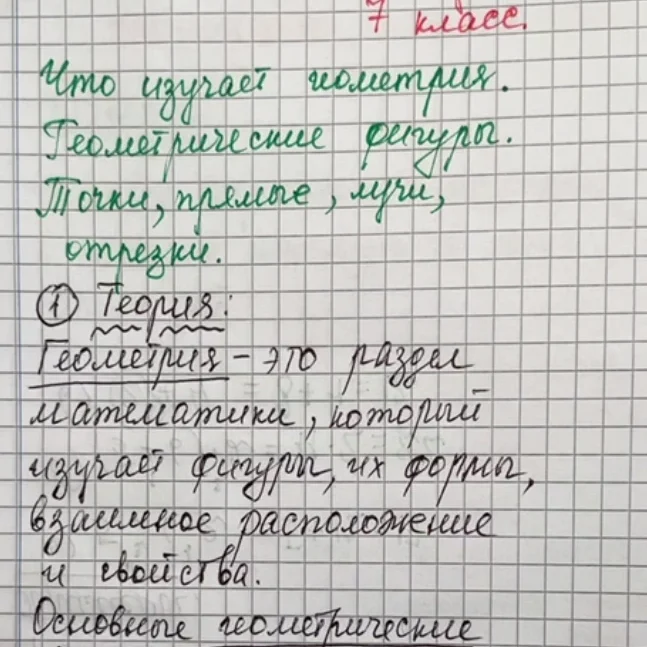 7 класс.
Что изучает геометрия.
Геометрические фигуры.
Точки, прямые, лучи,
отрезки.
① Теория:
Геометрия – это раздел
математики, который
изучает фигуры, их формы,
взаимное расположение
и свойства.
Основные геометрические